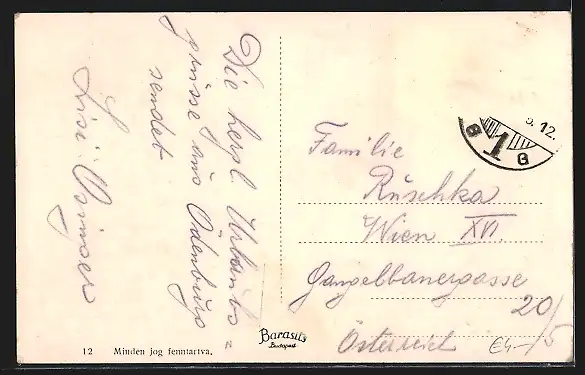 Die herzl. Urlaubs=
grüsse aus Ödenburg
sendet
Lisi
Familie
Ruschka
Wien XVI
Gangelbauergasse
20/5
Österreich
5. 12.
G 1 G
12 Minden jog fenntartva.
Barasits
Budapest